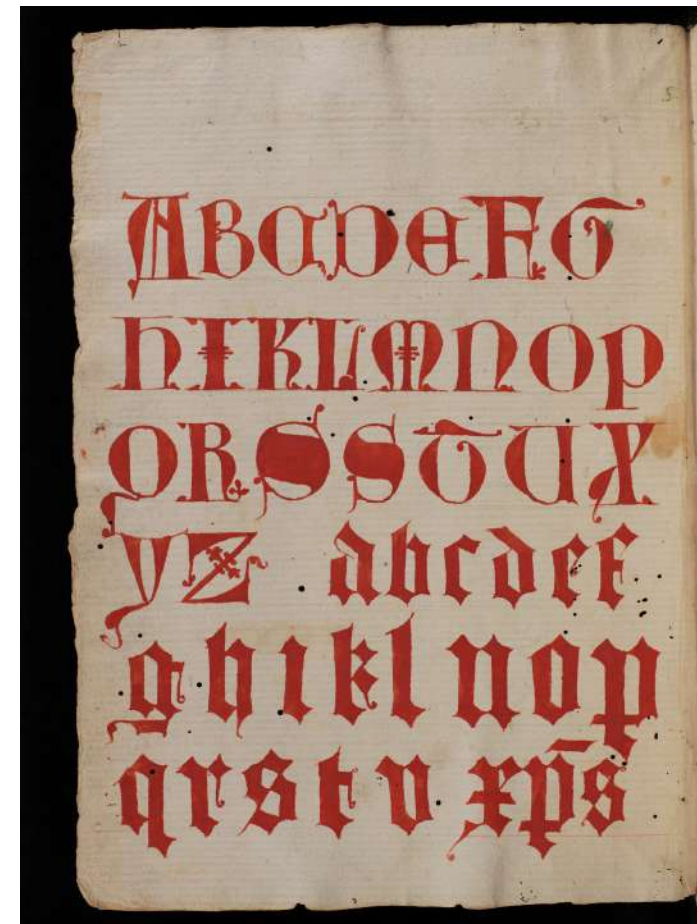 ABCDEFG
HIKLMNOP
QRSSTUX
YZ abcdef
ghikl nop
qrstv xp̄s